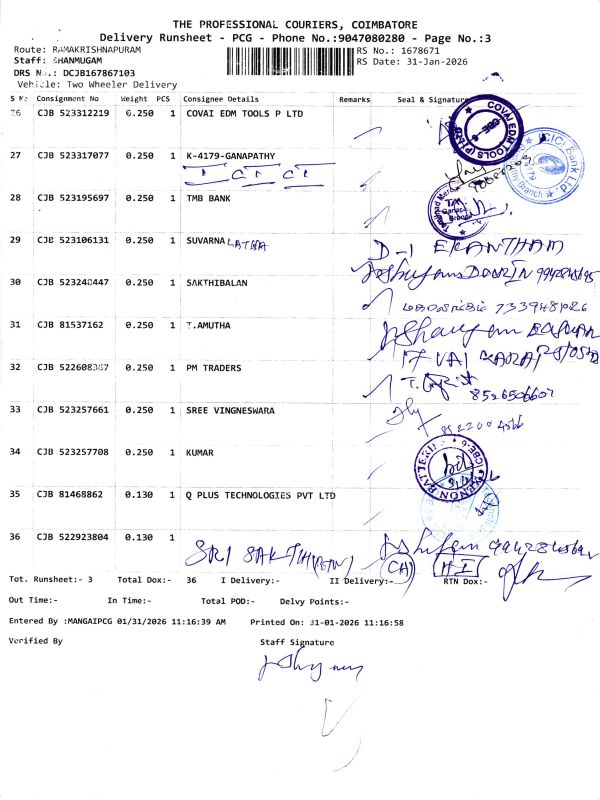 THE PROFESSIONAL COURIERS, COIMBATORE
Delivery Runsheet - PCG - Phone No.:9047080280 - Page No.:3
Route: RAMAKRISHNAPURAM
RS No.: 1678671
Staff: SHANMUGAM
RS Date: 31-Jan-2026
DRS No.: DCJB167867103
Vehicle: Two Wheeler Delivery
S No Consignment No Weight PCS Consignee Details Remarks Seal & Signature
26 CJB 523312219 6.250 1 COVAI EDM TOOLS P LTD
COVAI EDM TOOLS (P) LTD
CBE-6
27 CJB 523317077 0.250 1 K-4179-GANAPATHY
I C I C I
ICICI Bank Ltd
28 CJB 523195697 0.250 1 TMB BANK
29 CJB 523106131 0.250 1 SUVARNA LATHA
D-1 EKANTHAM
30 CJB 523248447 0.250 1 SAKTHIBALAN
31 CJB 81537162 0.250 1 T.AMUTHA
32 CJB 522608367 0.250 1 PM TRADERS
8526506607
33 CJB 523257661 0.250 1 SREE VINGNESWARA
34 CJB 523257708 0.250 1 KUMAR
35 CJB 81468862 0.130 1 Q PLUS TECHNOLOGIES PVT LTD
36 CJB 522923804 0.130 1
SRI SAKTHI
Tot. Runsheet:- 3 Total Dox:- 36 I Delivery:- II Delivery:- RTN Dox:-
Out Time:- In Time:- Total POD:- Delvy Points:-
Entered By :MANGAIPCG 01/31/2026 11:16:39 AM Printed On: 31-01-2026 11:16:58
Verified By Staff Signature